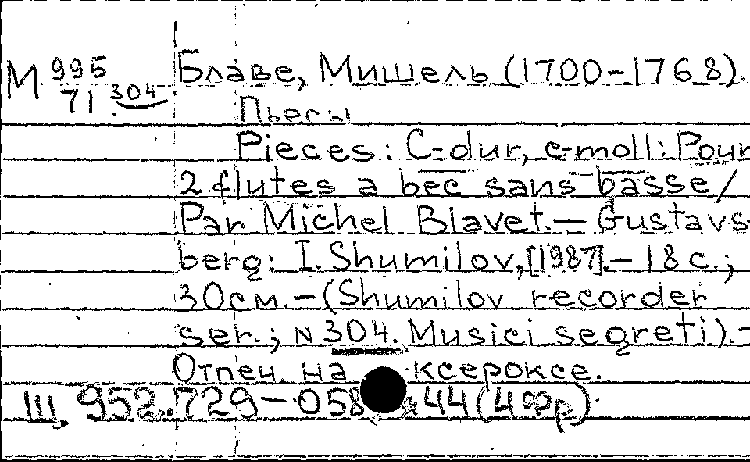 М 995 Блаве, Мишель (1700-1768).
71 304
Пьесы
Pieces: C-dur, c-moll: Pour
2 flutes a bec sans basse/
Par Michel Blavet.— Gustavs-
berg: I. Shumilov, [1987].— 18 с.;
30см.—(Shumilov recorder
ser.; N 304. Musici segreti).—
Отпеч. на ксероксе.
Ш. 952.729-058 44(4фр)